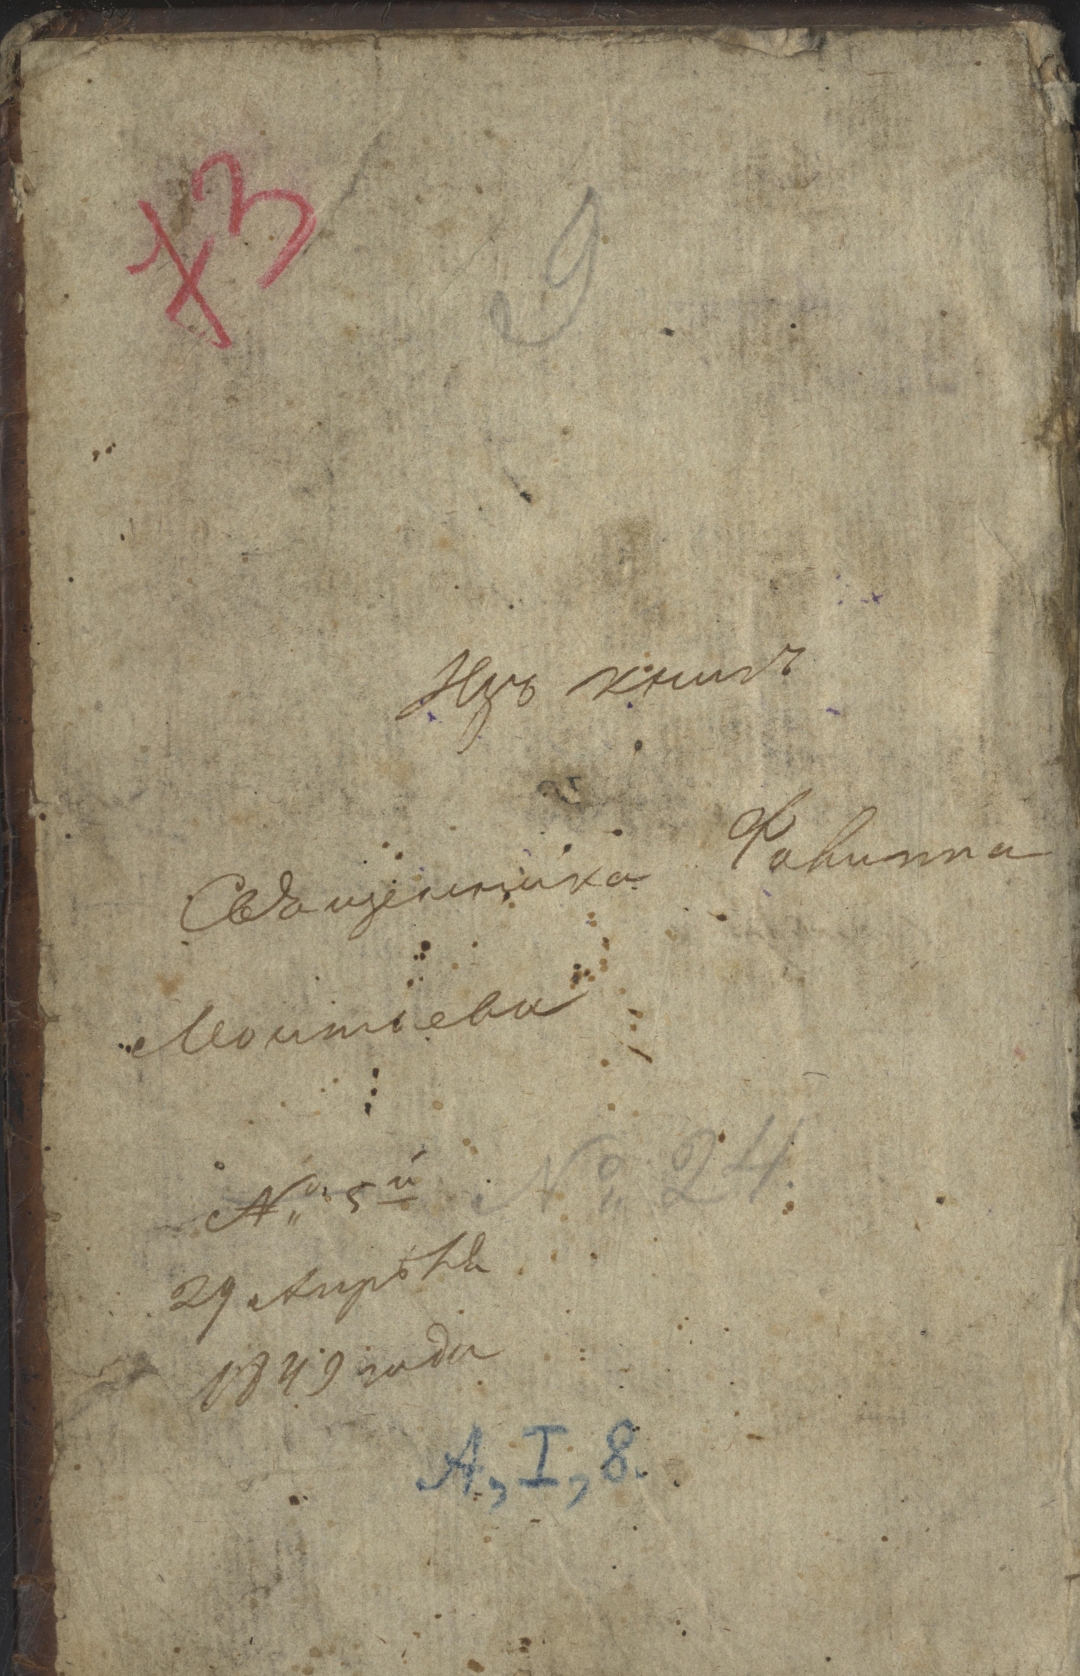 х3
9
Изъ книгъ
Священника Филиппа
№ 5й
№ 24
29 Апрѣля
1849 года
A, I, 8.